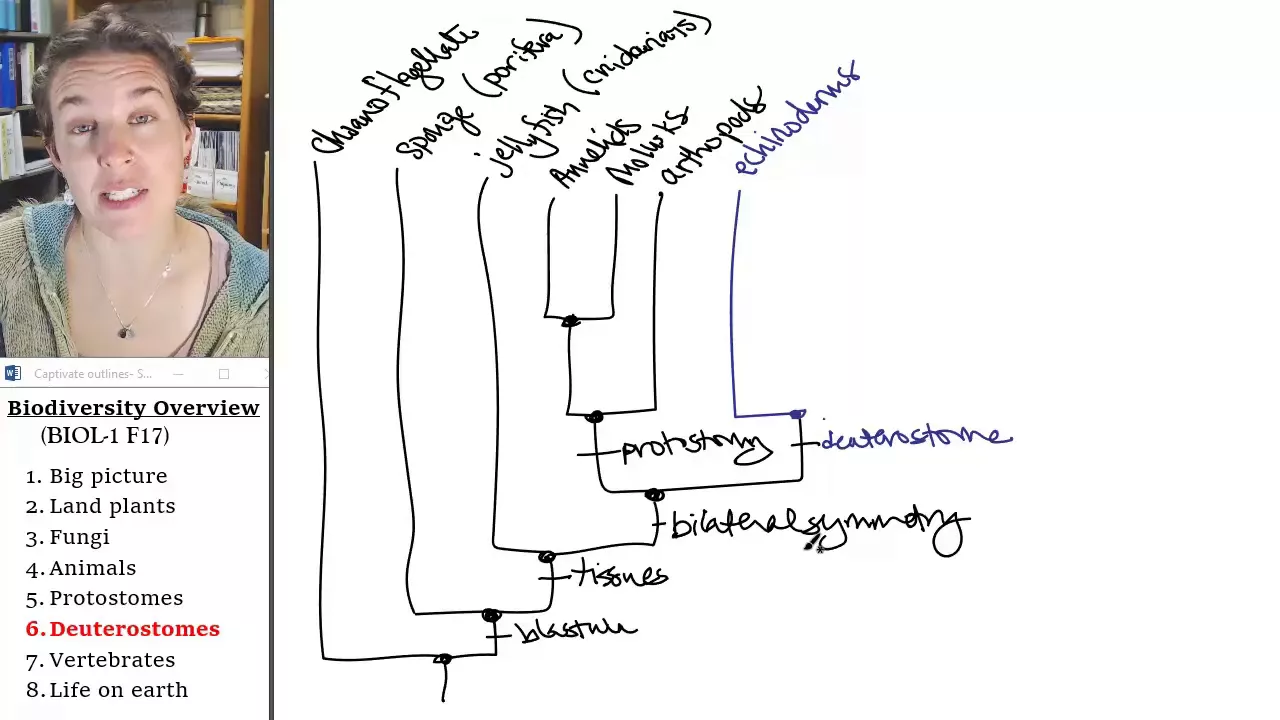 choanoflagellate
sponge (porifera)
jellyfish (cnidarians)
Annelids
Mollusks
arthropods
echinoderms
protostomy
deuterostome
bilateral symmetry
tissues
blastula
Captivate outlines- S...
Biodiversity Overview
(BIOL-1 F17)
1. Big picture
2. Land plants
3. Fungi
4. Animals
5. Protostomes
6. Deuterostomes
7. Vertebrates
8. Life on earth